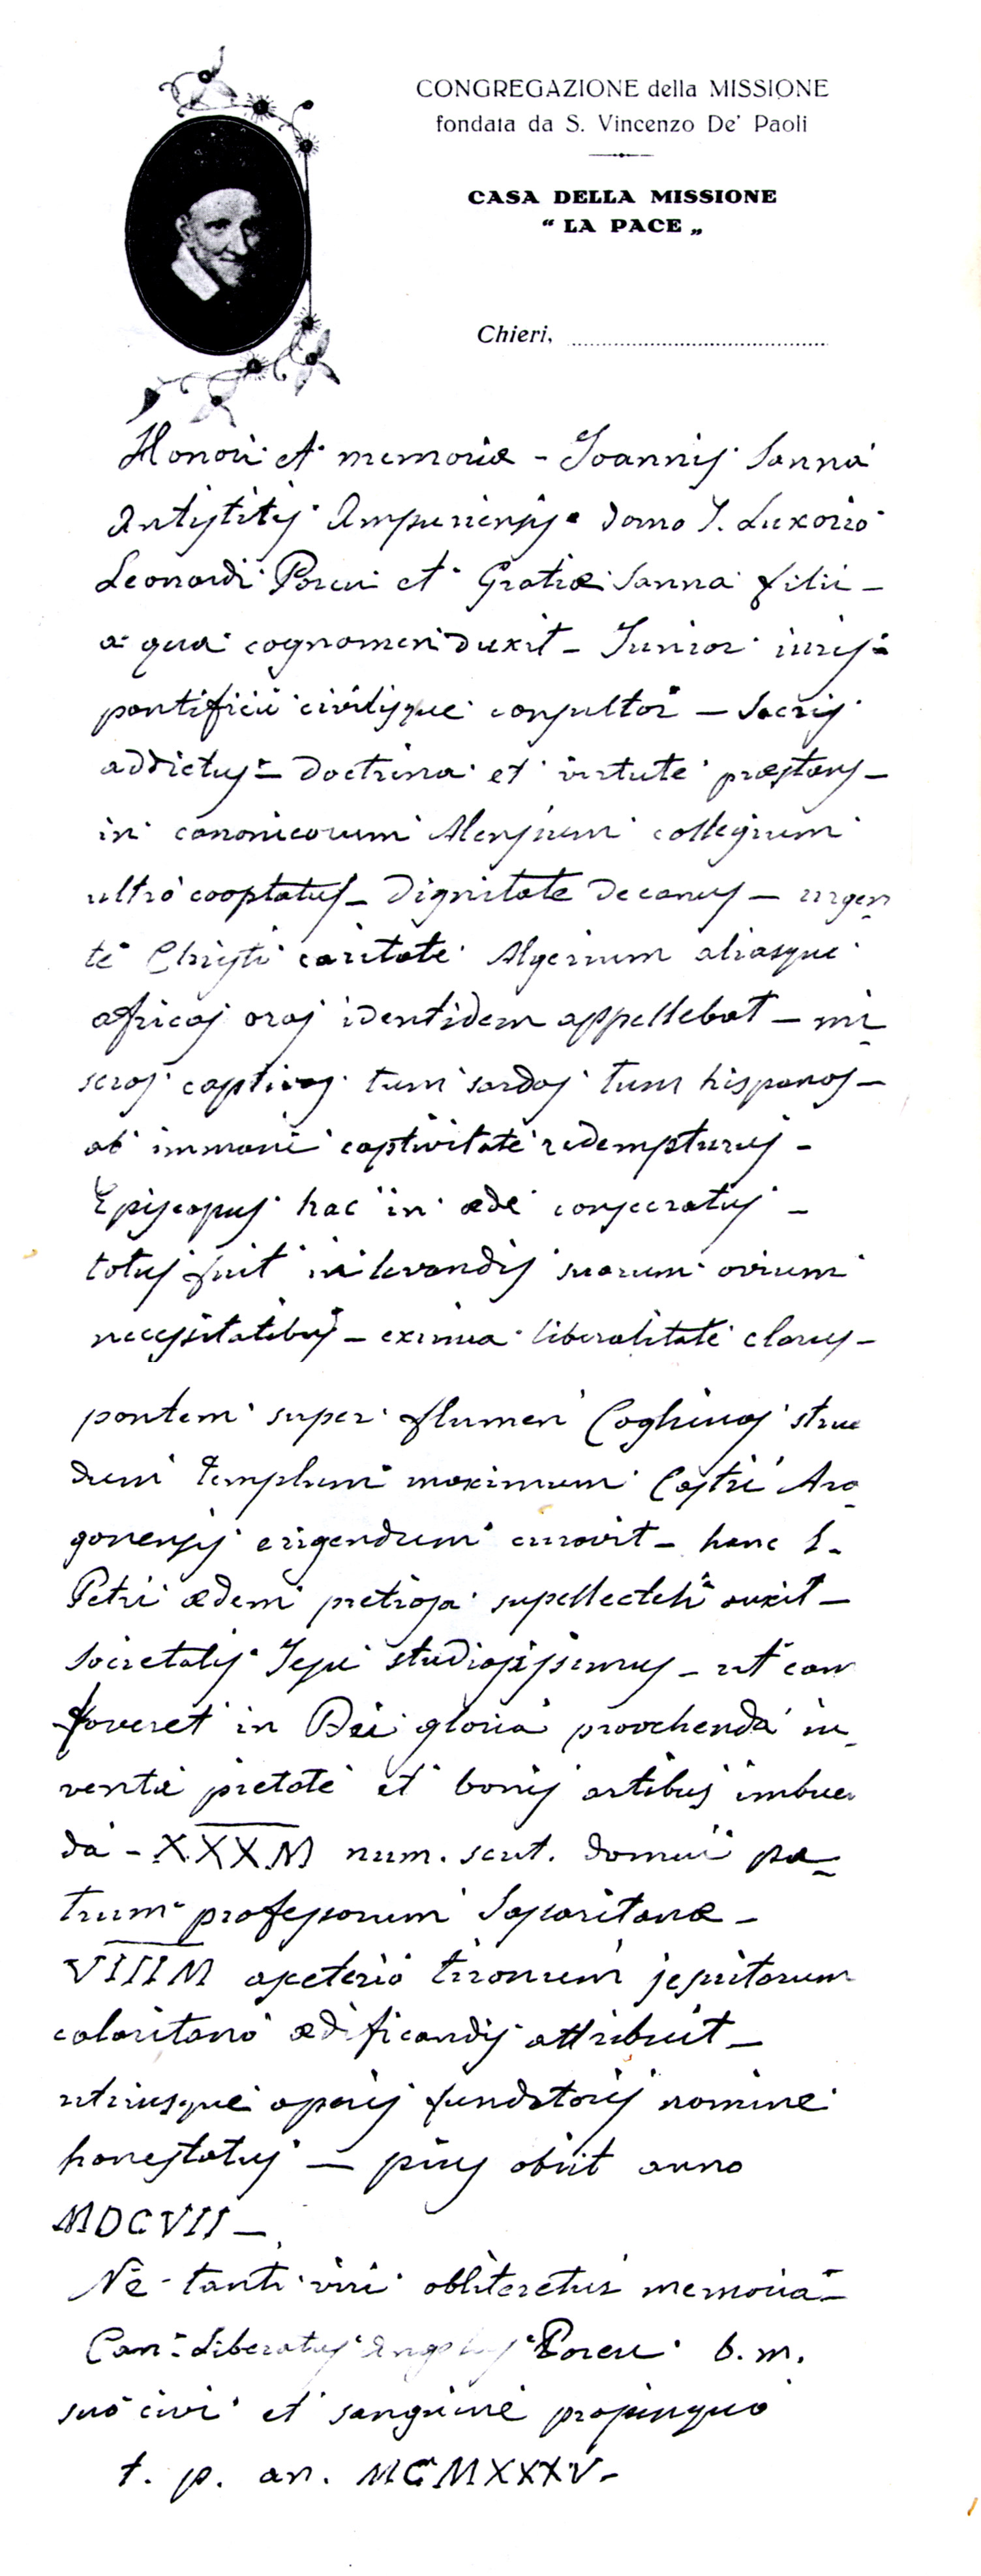 CONGREGAZIONE della MISSIONE
fondata da S. Vincenzo De' Paoli
CASA DELLA MISSIONE
“ LA PACE „
Chieri, ........................................
Honori et memoriæ - Joannis Sanna
Antistitis Ampuriensis - domo S. Luxorio
Leonardi Porcu et Gratiæ Sanna filii -
a qua cognomen duxit - Junior iuris
pontificii civilisque consultor - Sacris
addictus - Doctrina et virtute præstans -
in canonicorum Alensium collegium
ultro cooptatus - Dignitate Decanus - urgen
te Christi caritate Algerium aliasque
africas oras identidem appellebat - mi
seros captivos tum sardos tum hispanos -
ab immani captivitate redempturus -
Episcopus hac in æde consecratus -
totus fuit in levandis suarum ovium
necessitatibus - eximia liberalitate clarus -
pontem super flumen Coghinas strue
dum templum maximum Castri Ara
gonensis erigendum curavit - hanc S.
Petri ædem pretiosa supellectili auxit -
Societatis Jesu studiosissimus - ut eam
foveret in Dei gloria provehenda iu
ventæ pietate et bonis artibus imbuen
da - XXXM num. scut. domui pa
trum professorum Saparitanæ -
VIIIM asceterio tironum jesuitarum
calaritano ædificandis attribuit -
utriusque operis fundatoris nomine
honestatus - pius obiit anno
MDCVII -
Ne tanti viri obliteretur memoria -
Can. Liberatus Angelus Porcu b. m.
suo civi et sanguine propinquo
t. p. an. MCMXXXV -